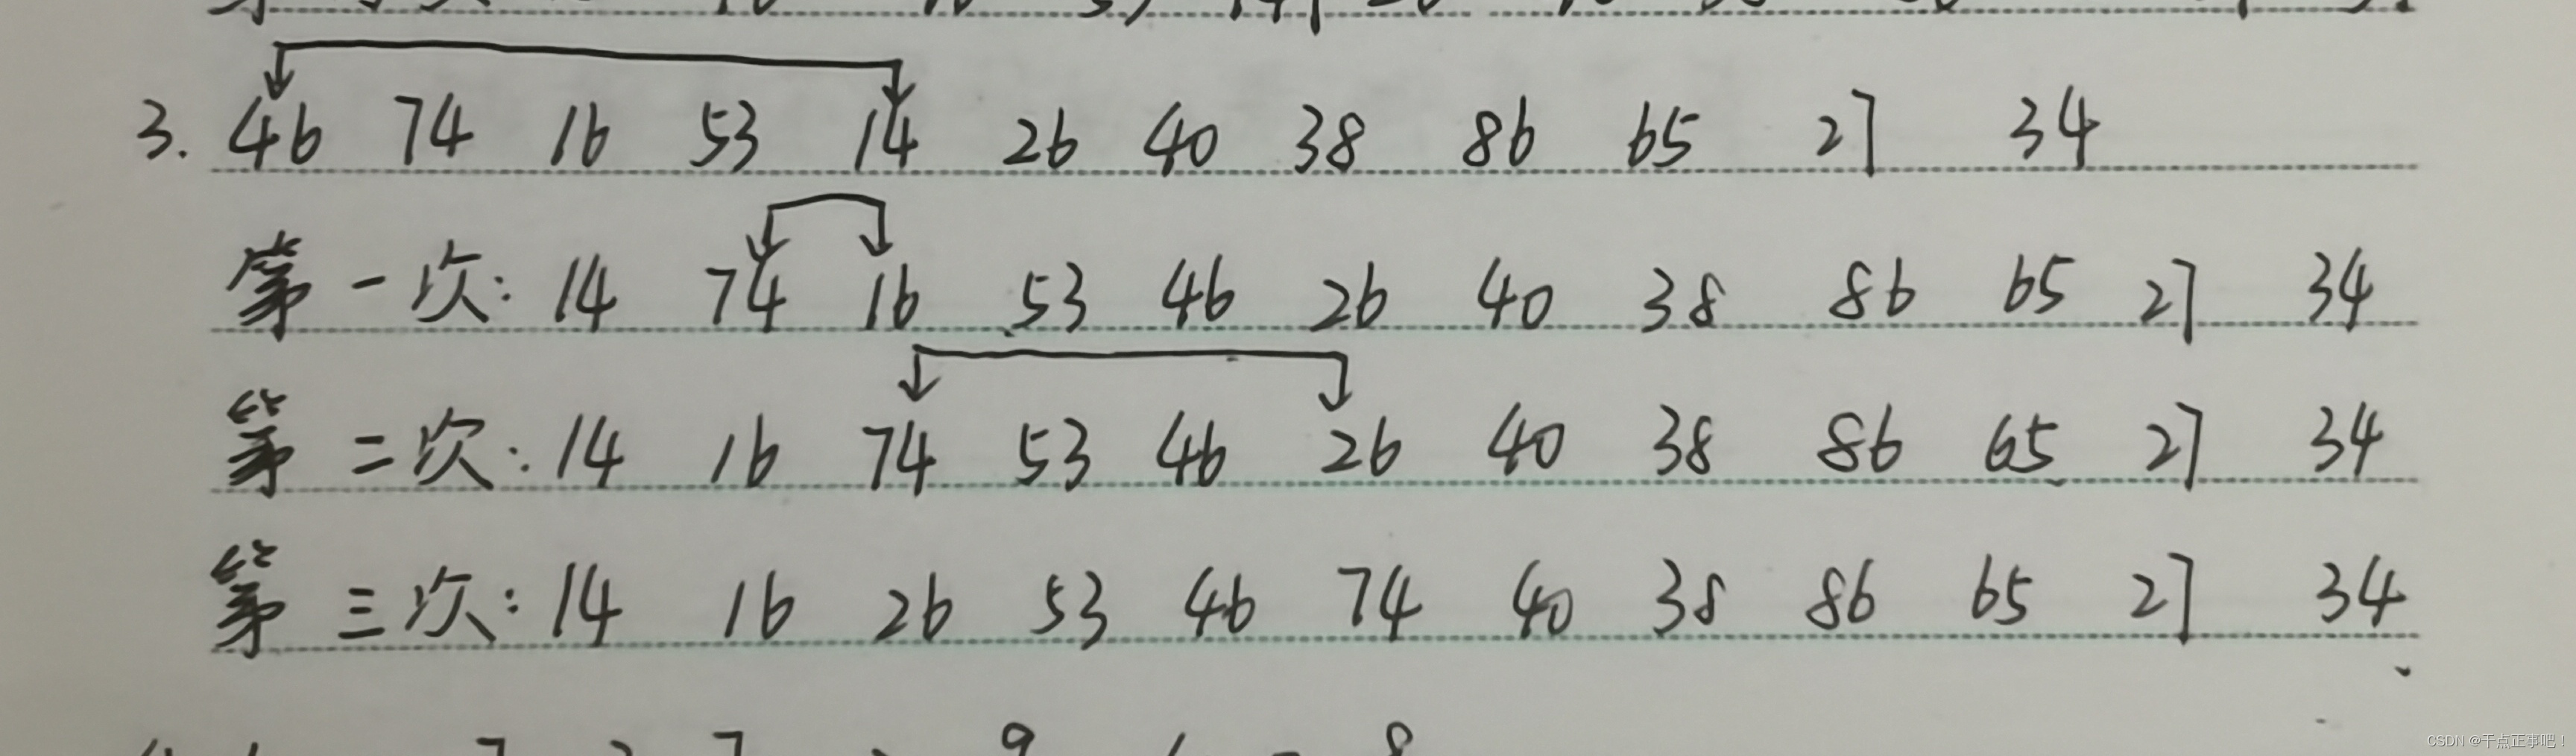 3. 46 74 16 53 14 26 40 38 86 65 27 34
第一次: 14 74 16 53 46 26 40 38 86 65 27 34
第二次: 14 16 74 53 46 26 40 38 86 65 27 34
第三次: 14 16 26 53 46 74 40 38 86 65 27 34
CSDN @干点正事吧!